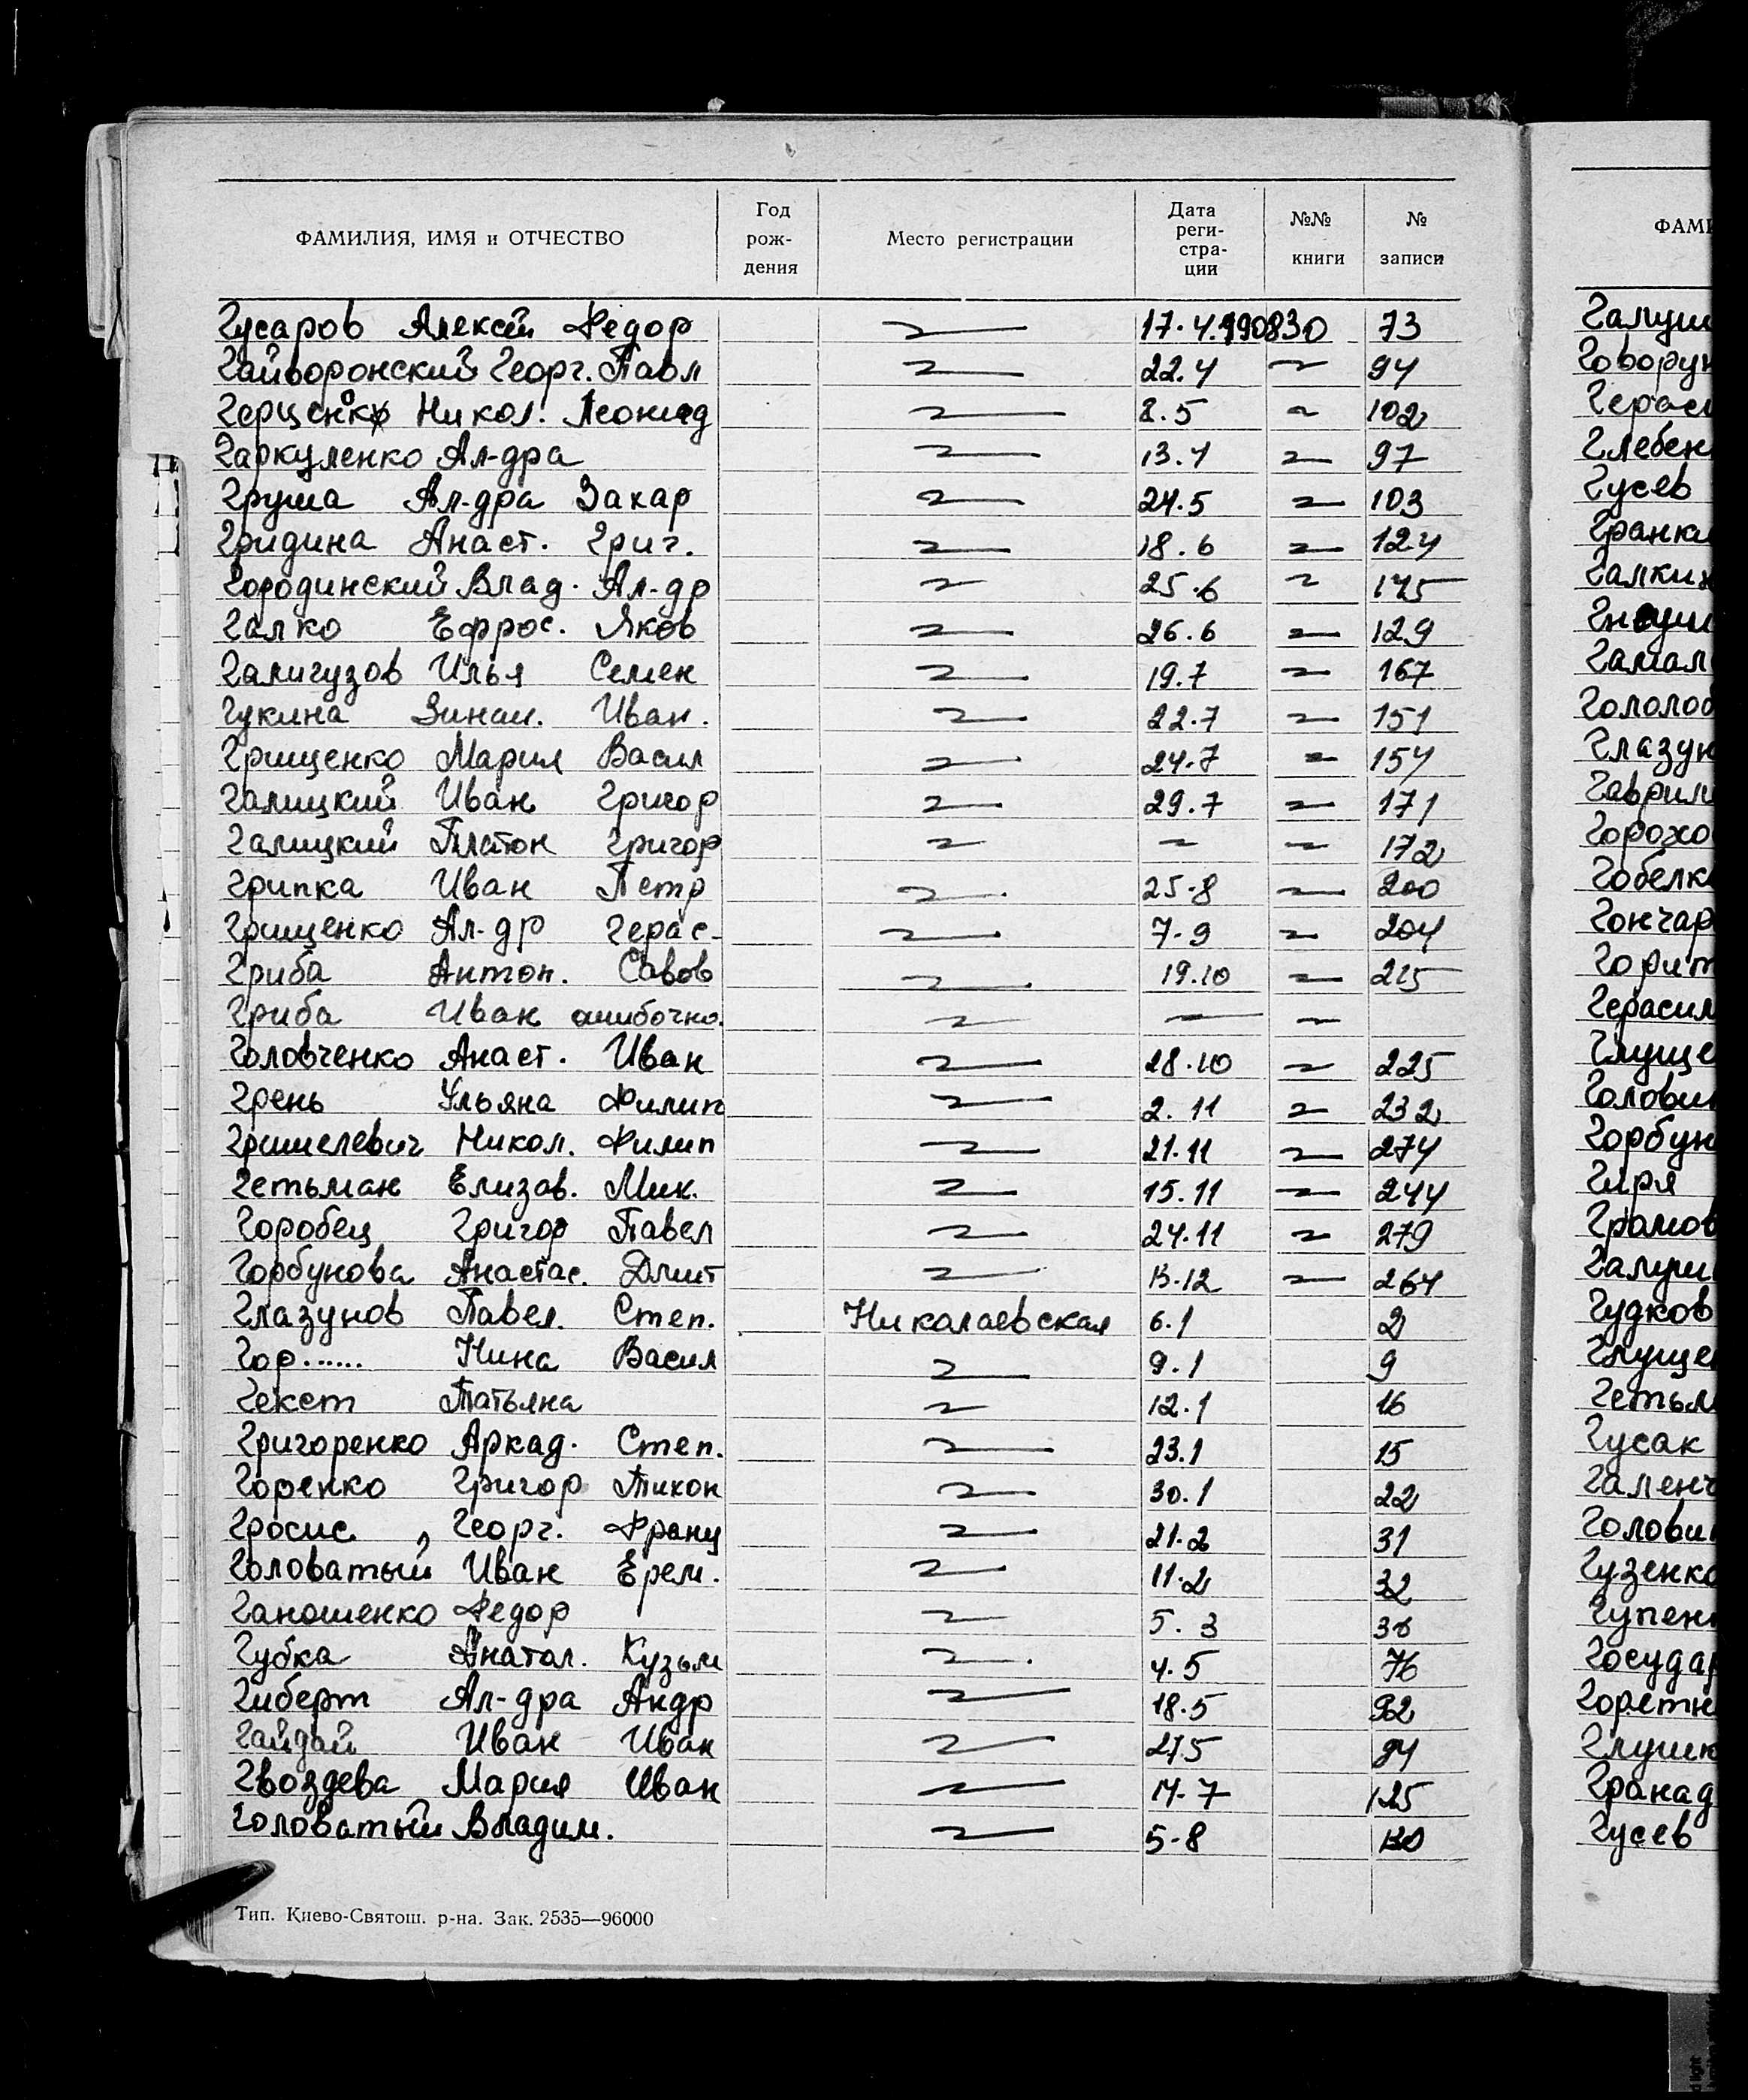 ФАМИЛИЯ, ИМЯ и ОТЧЕСТВО Год рождения Место регистрации Дата регистрации №№ книги № записи
Гусаров Алексей Федор 17.4.190830 73
Гайворонский Георг. Павл 22.4 94
Герценко Никол. Леонид 2.5 102
Гаркуленко Ал-дра 13.4 97
Груша Ал-дра Захар 24.5 103
Гридина Анаст. Григ. 18.6 124
Городинский Влад. Ал-др 25.6 175
Галко Ефрос. Яков 26.6 129
Галигузов Илья Семен 19.7 167
Гукина Зинаи. Иван. 22.7 151
Грищенко Мария Васил 24.7 154
Галицкий Иван Григор 29.7 171
Галицкий Платон Григор — 172
Грипка Иван Петр 25-8 200
Грищенко Ал-др Герас- 7-9 204
Гриба Антон. Савов 19.10 215
Гриба Иван ошибочно.
Головченко Анаст. Иван 28.10 225
Грень Ульяна Филип 2.11 232
Гришелевич Никол. Филип 21.11 274
Гетьман Елизав. Мик. 15.11 244
Горобец Григор Павел 24.11 279
Горбунова Анастас. Дмит 13-12 264
Глазунов Павел. Степ. Николаевская 6.1 2
Гор...... Нина Васил 9.1 9
Гекст Татьяна 12.1 16
Григоренко Аркад. Степ. 23.1 15
Горенко Григор Тихон 30.1 22
Гросис, Георг. Франц 21.2 31
Головатый Иван Ерем. 11.2 32
Ганошенко Федор 5.3
Губка Анатол. Кузьм 4.5 76
Гиберт Ал-дра Андр 18.5 92
Гайдай Иван Иван 27.5 94
Гвоздева Мария Иван 14.7 125
Головатый Владим. 5-8 130
Тип. Киево-Святош. р-на. Зак. 2535—96000
ФАМИ
Галуш
Говорун
Гераси
Глебен
Гусев
Гранки
Галкин
Гнауш
Гамал
Гололоб
Глазун
Гаврил
Горохо
Гобелк
Гончар
Горит
Герасим
Глуще
Голови
Горбун
Гиря
Грамов
Галуш
Гудков
Глуще
Гетьм
Гусак
Галенч
Голови
Гузенко
Гупен
Государ
Горетн
Глушк
Гранад
Гусев